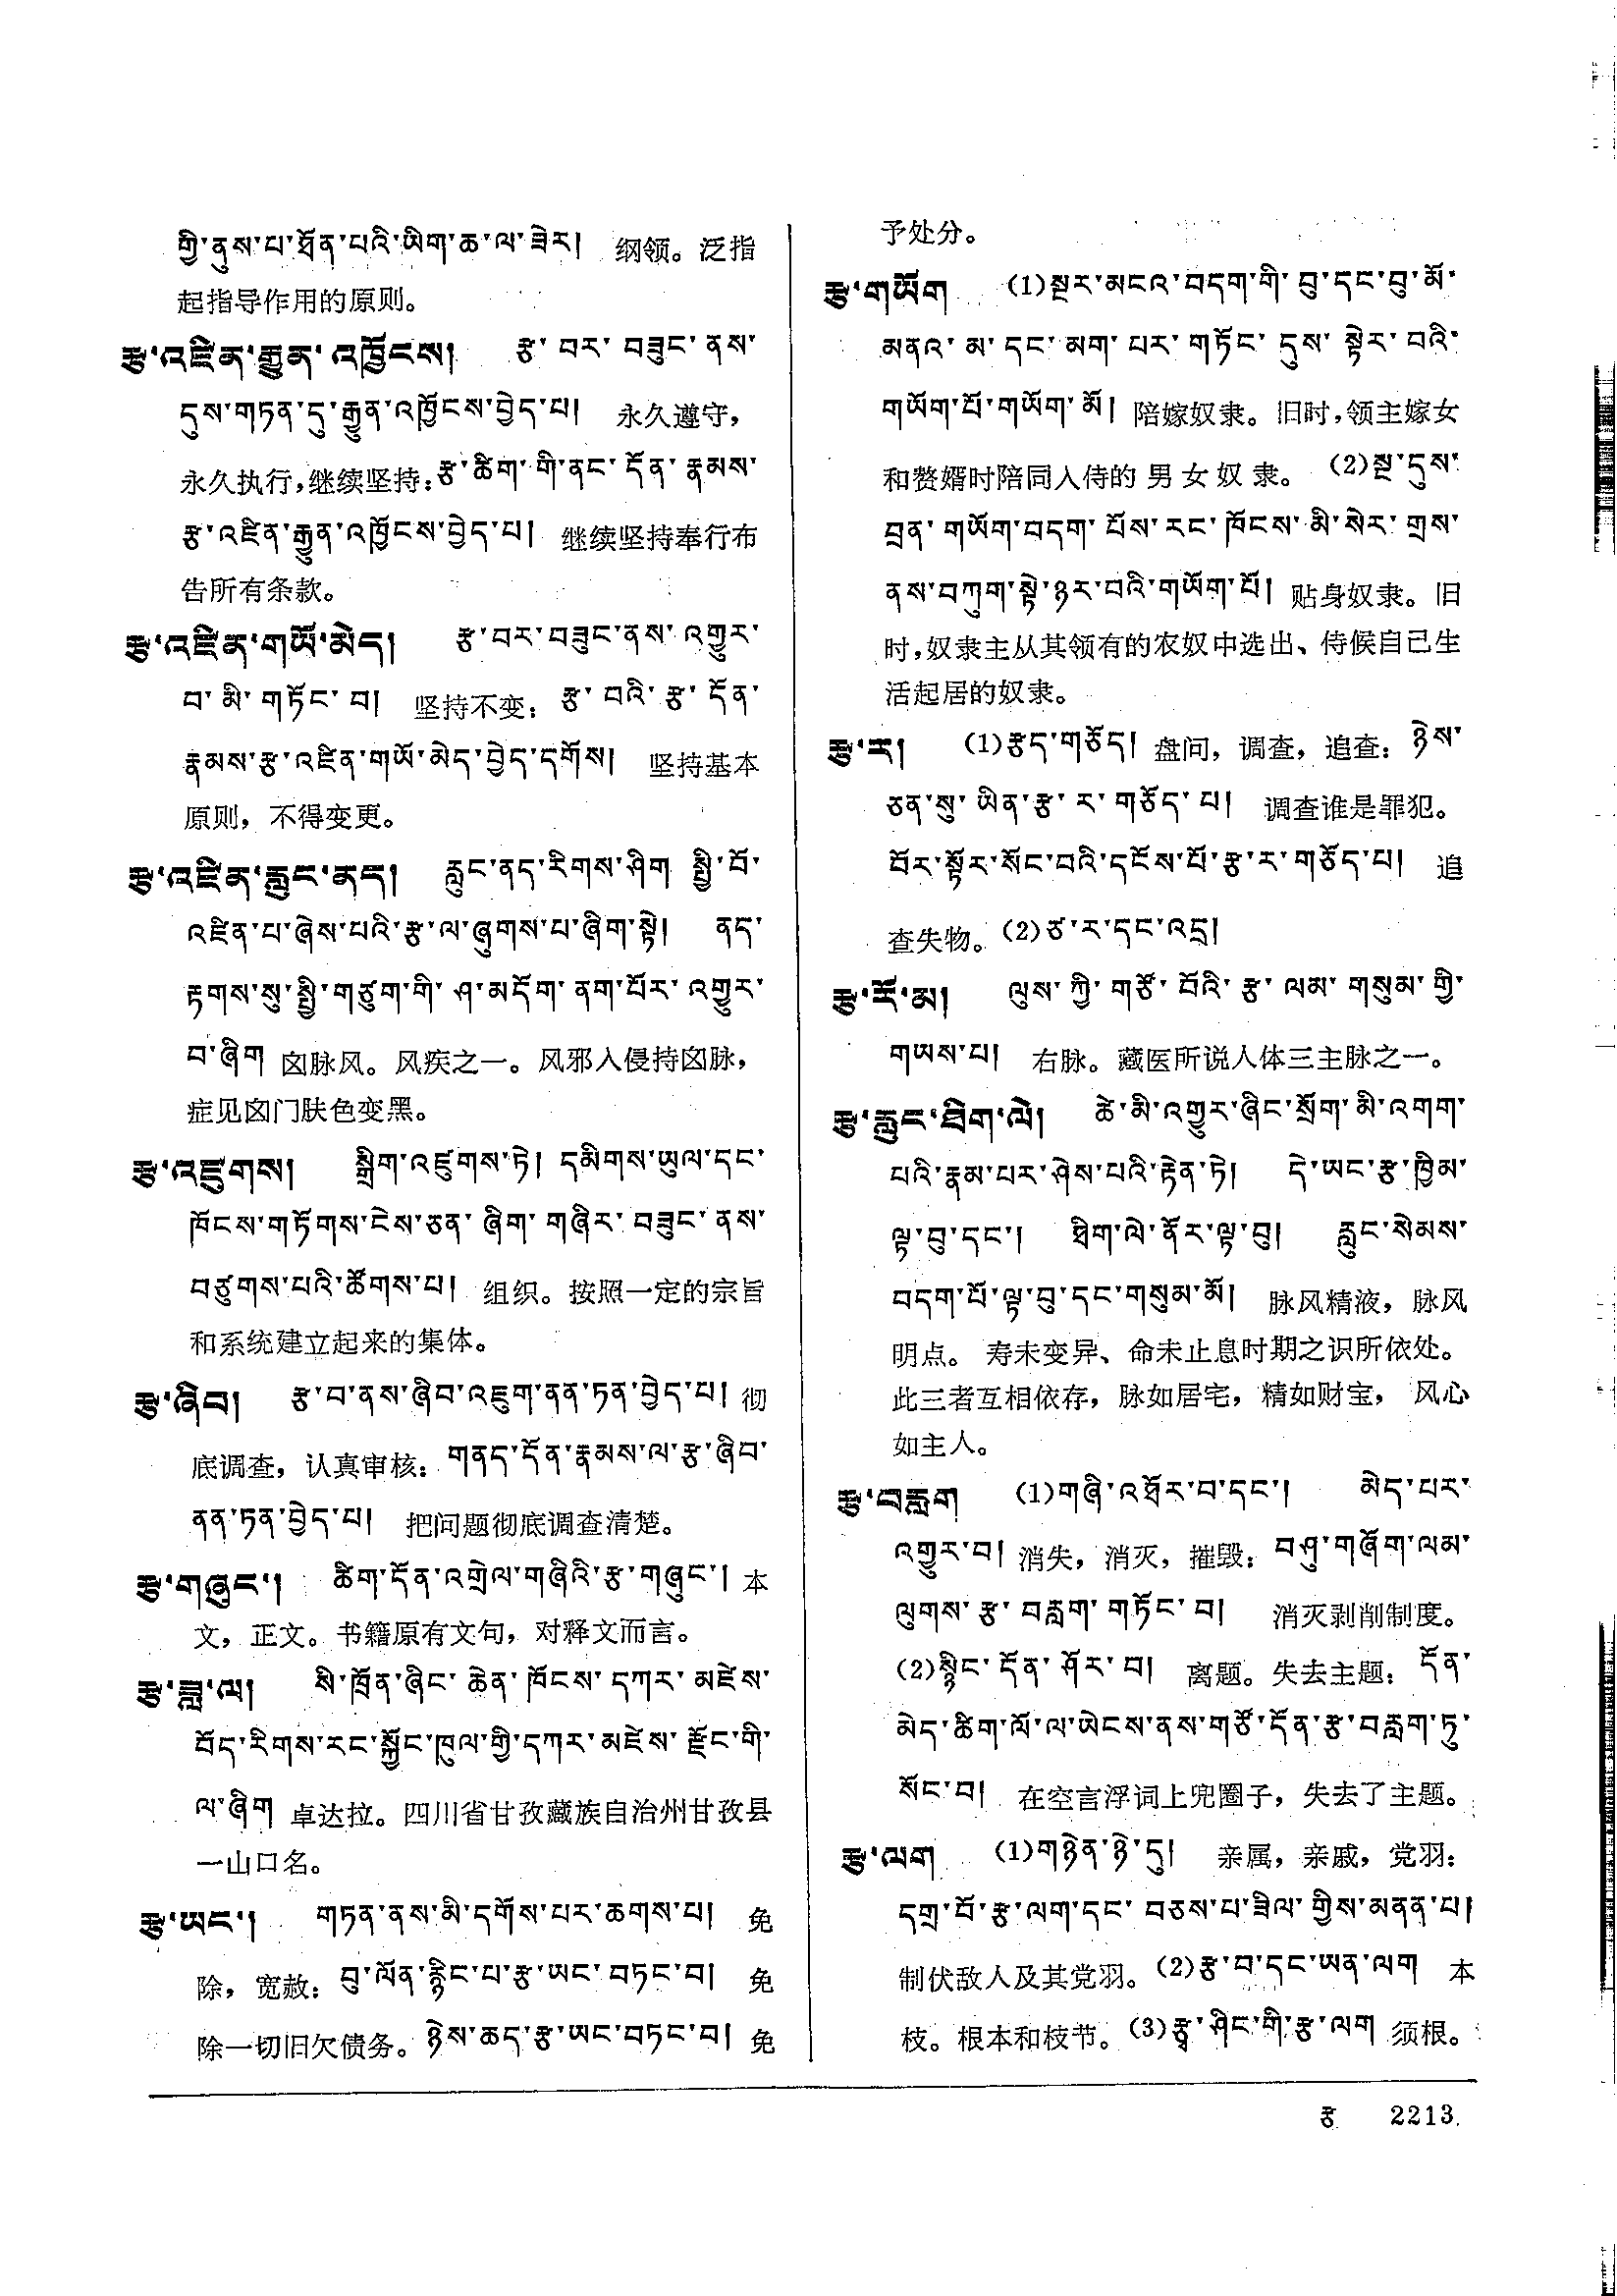 གྱི་ནུས་པ་ཐོན་པའི་ཡིག་ཆ་ལ་ཟེར། 纲领。泛指
起指导作用的原则。
རྩ་འཛིན་རྒྱུན་འཁྱོངས། རྩ་བར་བཟུང་ནས་
དུས་གཏན་དུ་རྒྱུན་འཁྱོངས་བྱེད་པ། 永久遵守，
永久执行，继续坚持：རྩ་ཚིག་གི་ནང་དོན་རྣམས་
རྩ་འཛིན་རྒྱུན་འཁྱོངས་བྱེད་པ། 继续坚持奉行布
告所有条款。
རྩ་འཛིན་གཡོ་མེད། རྩ་བར་བཟུང་ནས་འགྱུར་
བ་མི་གཏོང་བ། 坚持不变：རྩ་བའི་རྩ་དོན་
རྣམས་རྩ་འཛིན་གཡོ་མེད་བྱེད་དགོས། 坚持基本
原则，不得变更。
རྩ་འཛིན་རླུང་ནད། རླུང་ནད་རིགས་ཤིག སྤྱི་བོ་
འཛིན་པ་ཞེས་པའི་རྩ་ལ་ཞུགས་པ་ཞིག་སྟེ། ནད་
རྟགས་སུ་སྤྱི་གཙུག་གི་ཤ་མདོག་ནག་པོར་འགྱུར་
བ་ཞིག 囟脉风。风疾之一。风邪入侵持囟脉，
症见囟门肤色变黑。
རྩ་འཛུགས། སྒྲིག་འཛུགས་ཏེ། དམིགས་ཡུལ་དང་
ཁོངས་གཏོགས་ངེས་ཅན་ཞིག་གཞིར་བཟུང་ནས་
བཙུགས་པའི་ཚོགས་པ། 组织。按照一定的宗旨
和系统建立起来的集体。
རྩ་ཞིབ། རྩ་བ་ནས་ཞིབ་འཇུག་ནན་ཏན་བྱེད་པ། 彻
底调查，认真审核：གནད་དོན་རྣམས་ལ་རྩ་ཞིབ་
ནན་ཏན་བྱེད་པ། 把问题彻底调查清楚。
རྩ་གཞུང་། ཚིག་དོན་འགྲེལ་གཞིའི་རྩ་གཞུང་། 本
文，正文。书籍原有文句，对释文而言。
རྩ་ཟླ་ལ། སི་ཁྲོན་ཞིང་ཆེན་ཁོངས་དཀར་མཛེས་
བོད་རིགས་རང་སྐྱོང་ཁུལ་གྱི་དཀར་མཛེས་རྫོང་གི་
ལ་ཞིག 卓达拉。四川省甘孜藏族自治州甘孜县
一山口名。
རྩ་ཡང་། གཏན་ནས་མི་དགོས་པར་ཆགས་པ། 免
除，宽赦：བུ་ལོན་རྙིང་པ་རྩ་ཡང་བཏང་བ། 免
除一切旧欠债务。ཉེས་ཆད་རྩ་ཡང་བཏང་བ། 免
予处分。
རྩ་གཡོག (1)སྔར་མངའ་བདག་གི་བུ་དང་བུ་མོ་
མནའ་མ་དང་མག་པར་གཏོང་དུས་སྟེར་བའི་
གཡོག་པོ་གཡོག་མོ། 陪嫁奴隶。旧时，领主嫁女
和赘婿时陪同入侍的男女奴隶。(2)སྔ་དུས་
བྲན་གཡོག་བདག་པོས་རང་ཁོངས་མི་སེར་གྲས་
ནས་བཀུག་སྟེ་ཉར་བའི་གཡོག་པོ། 贴身奴隶。旧
时，奴隶主从其领有的农奴中选出、侍候自己生
活起居的奴隶。
རྩ་ར། (1)རྩད་གཅོད། 盘问，调查，追查：ཉེས་
ཅན་སུ་ཡིན་རྩ་ར་གཅོད་པ། 调查谁是罪犯。
བོར་སྟོར་སོང་བའི་དངོས་པོ་རྩ་ར་གཅོད་པ། 追
查失物。(2)ཙ་ར་དང་འདྲ།
རྩ་རོ་མ། ལུས་ཀྱི་གཙོ་བོའི་རྩ་ལམ་གསུམ་གྱི་
གཡས་པ། 右脉。藏医所说人体三主脉之一。
རྩ་རླུང་ཐིག་ལེ། ཚེ་མི་འགྱུར་ཞིང་སྲོག་མི་འགག་
པའི་རྣམ་པར་ཤེས་པའི་རྟེན་ཏེ། དེ་ཡང་རྩ་ཁྱིམ་
ལྟ་བུ་དང་། ཐིག་ལེ་ནོར་ལྟ་བུ། རླུང་སེམས་
བདག་པོ་ལྟ་བུ་དང་གསུམ་མོ། 脉风精液，脉风
明点。寿未变异、命未止息时期之识所依处。
此三者互相依存，脉如居宅，精如财宝，风心
如主人。
རྩ་བརླག (1)གཞི་འཐོར་བ་དང་། མེད་པར་
འགྱུར་བ། 消失，消灭，摧毁：བཤུ་གཞོག་ལམ་
ལུགས་རྩ་བརླག་གཏོང་བ། 消灭剥削制度。
(2)སྙིང་དོན་ཤོར་བ། 离题。失去主题：དོན་
མེད་ཚིག་ལོ་ལ་ཡེངས་ནས་གཙོ་དོན་རྩ་བརླག་ཏུ་
སོང་བ། 在空言浮词上兜圈子，失去了主题。
རྩ་ལག (1)གཉེན་ཉེ་དུ། 亲属，亲戚，党羽：
དགྲ་བོ་རྩ་ལག་དང་བཅས་པ་ཟིལ་གྱིས་མནན་པ།
制伏敌人及其党羽。(2)རྩ་བ་དང་ཡན་ལག 本
枝。根本和枝节。(3)རྩྭ་ཤིང་གི་རྩ་ལག 须根。
རྩ 2213